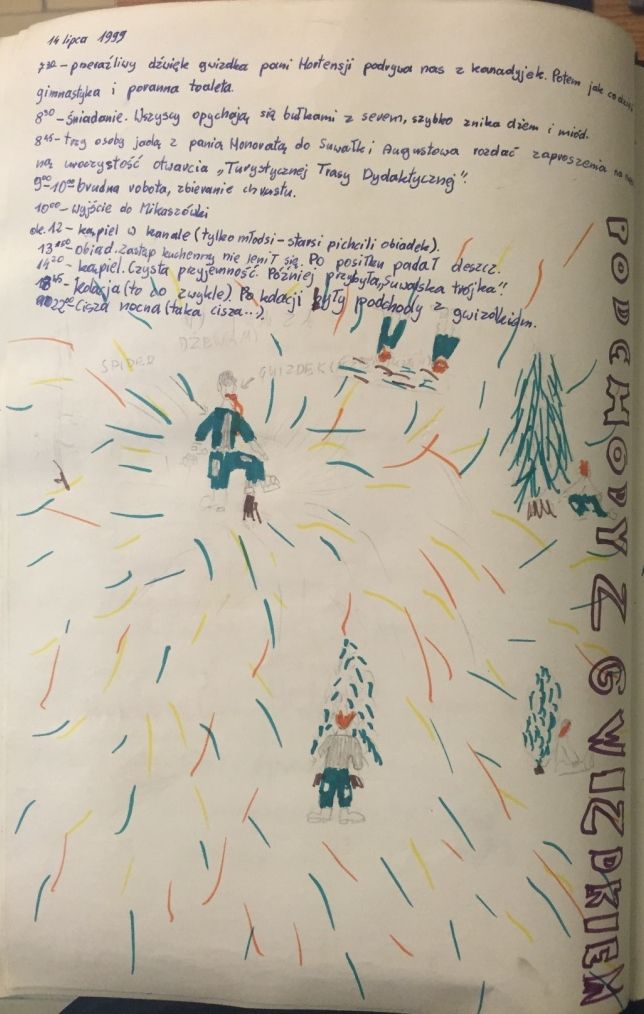 14 lipca 1999
7³⁰ - przeraźliwy dźwięk gwizdka pani Hortensji podrywa nas z kanadyjek. Potem jak co dzień
gimnastyka i poranna toaleta.
8³⁰ - śniadanie. Wszyscy opychają się bułkami z serem, szybko znika dżem i miód.
8⁴⁵ - trzy osoby jadą z panią Honoratą do Suwałk i Augustowa rozdać zaproszenia na
ną uroczystość otwarcia „Turystycznej Trasy Dydaktycznej".
9⁰⁰-10⁰⁰ brudna robota, zbieranie chrustu.
10⁰⁰ - wyjście do Mikaszówki
ok. 12 - kąpiel w kanale (tylko młodsi - starsi pichcili obiadek).
obiad. Zastęp kuchenny nie lenił się. Po posiłku padał deszcz.
14²⁰ - kąpiel. Czysta przyjemność. Później przybyła „Suwalska trójka".
18⁴⁵ - kolacja (to co zwykle). Po kolacji były podchody z gwizdkiem.
22⁰⁰ - Cisza nocna (taka cisza...).
SPIDER
GWIZDEK
PODCHODY Z GWIZDKIEM